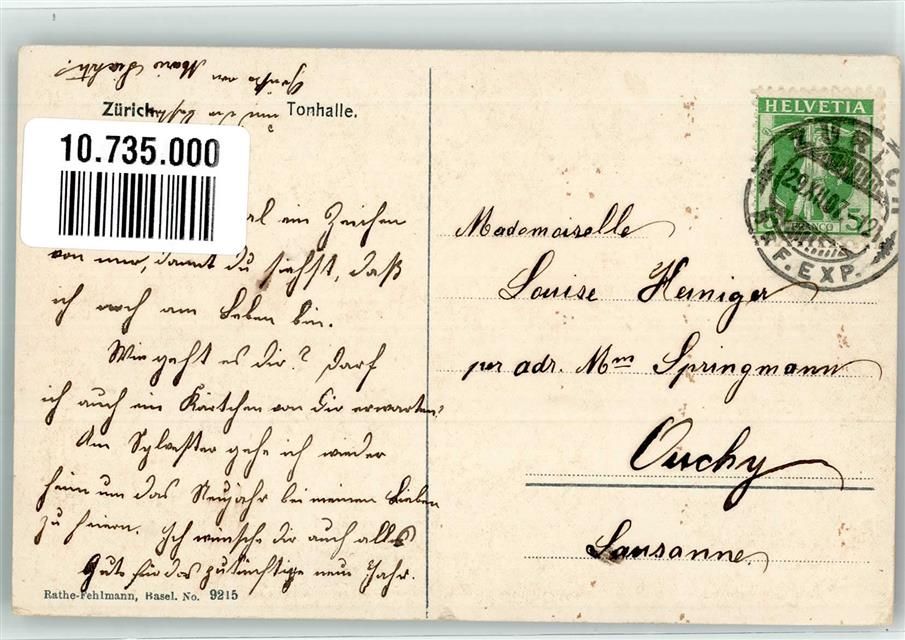 Zürich
Tonhalle.
10.735.000
ein Zeichen
von mir, damit du siehst, daß
ich noch am Leben bin.
Wie geht es dir? Darf
ich auch ein Kärtchen von dir erwarten?
Am Sylvester gehe ich wieder
heim um das Neujahr bei meinen Lieben
zu feiern. Ich wünsche dir auch alles
Gute für das zukünftige neue Jahr.
Rathe-Fehlmann, Basel. No. 9215
HELVETIA
FRANCO
ZÜRICH
29.XII.07.
F. EXP.
Mademoiselle
Louise Heiniger
per adr. Mm Springmann
Ouchy
Lausanne